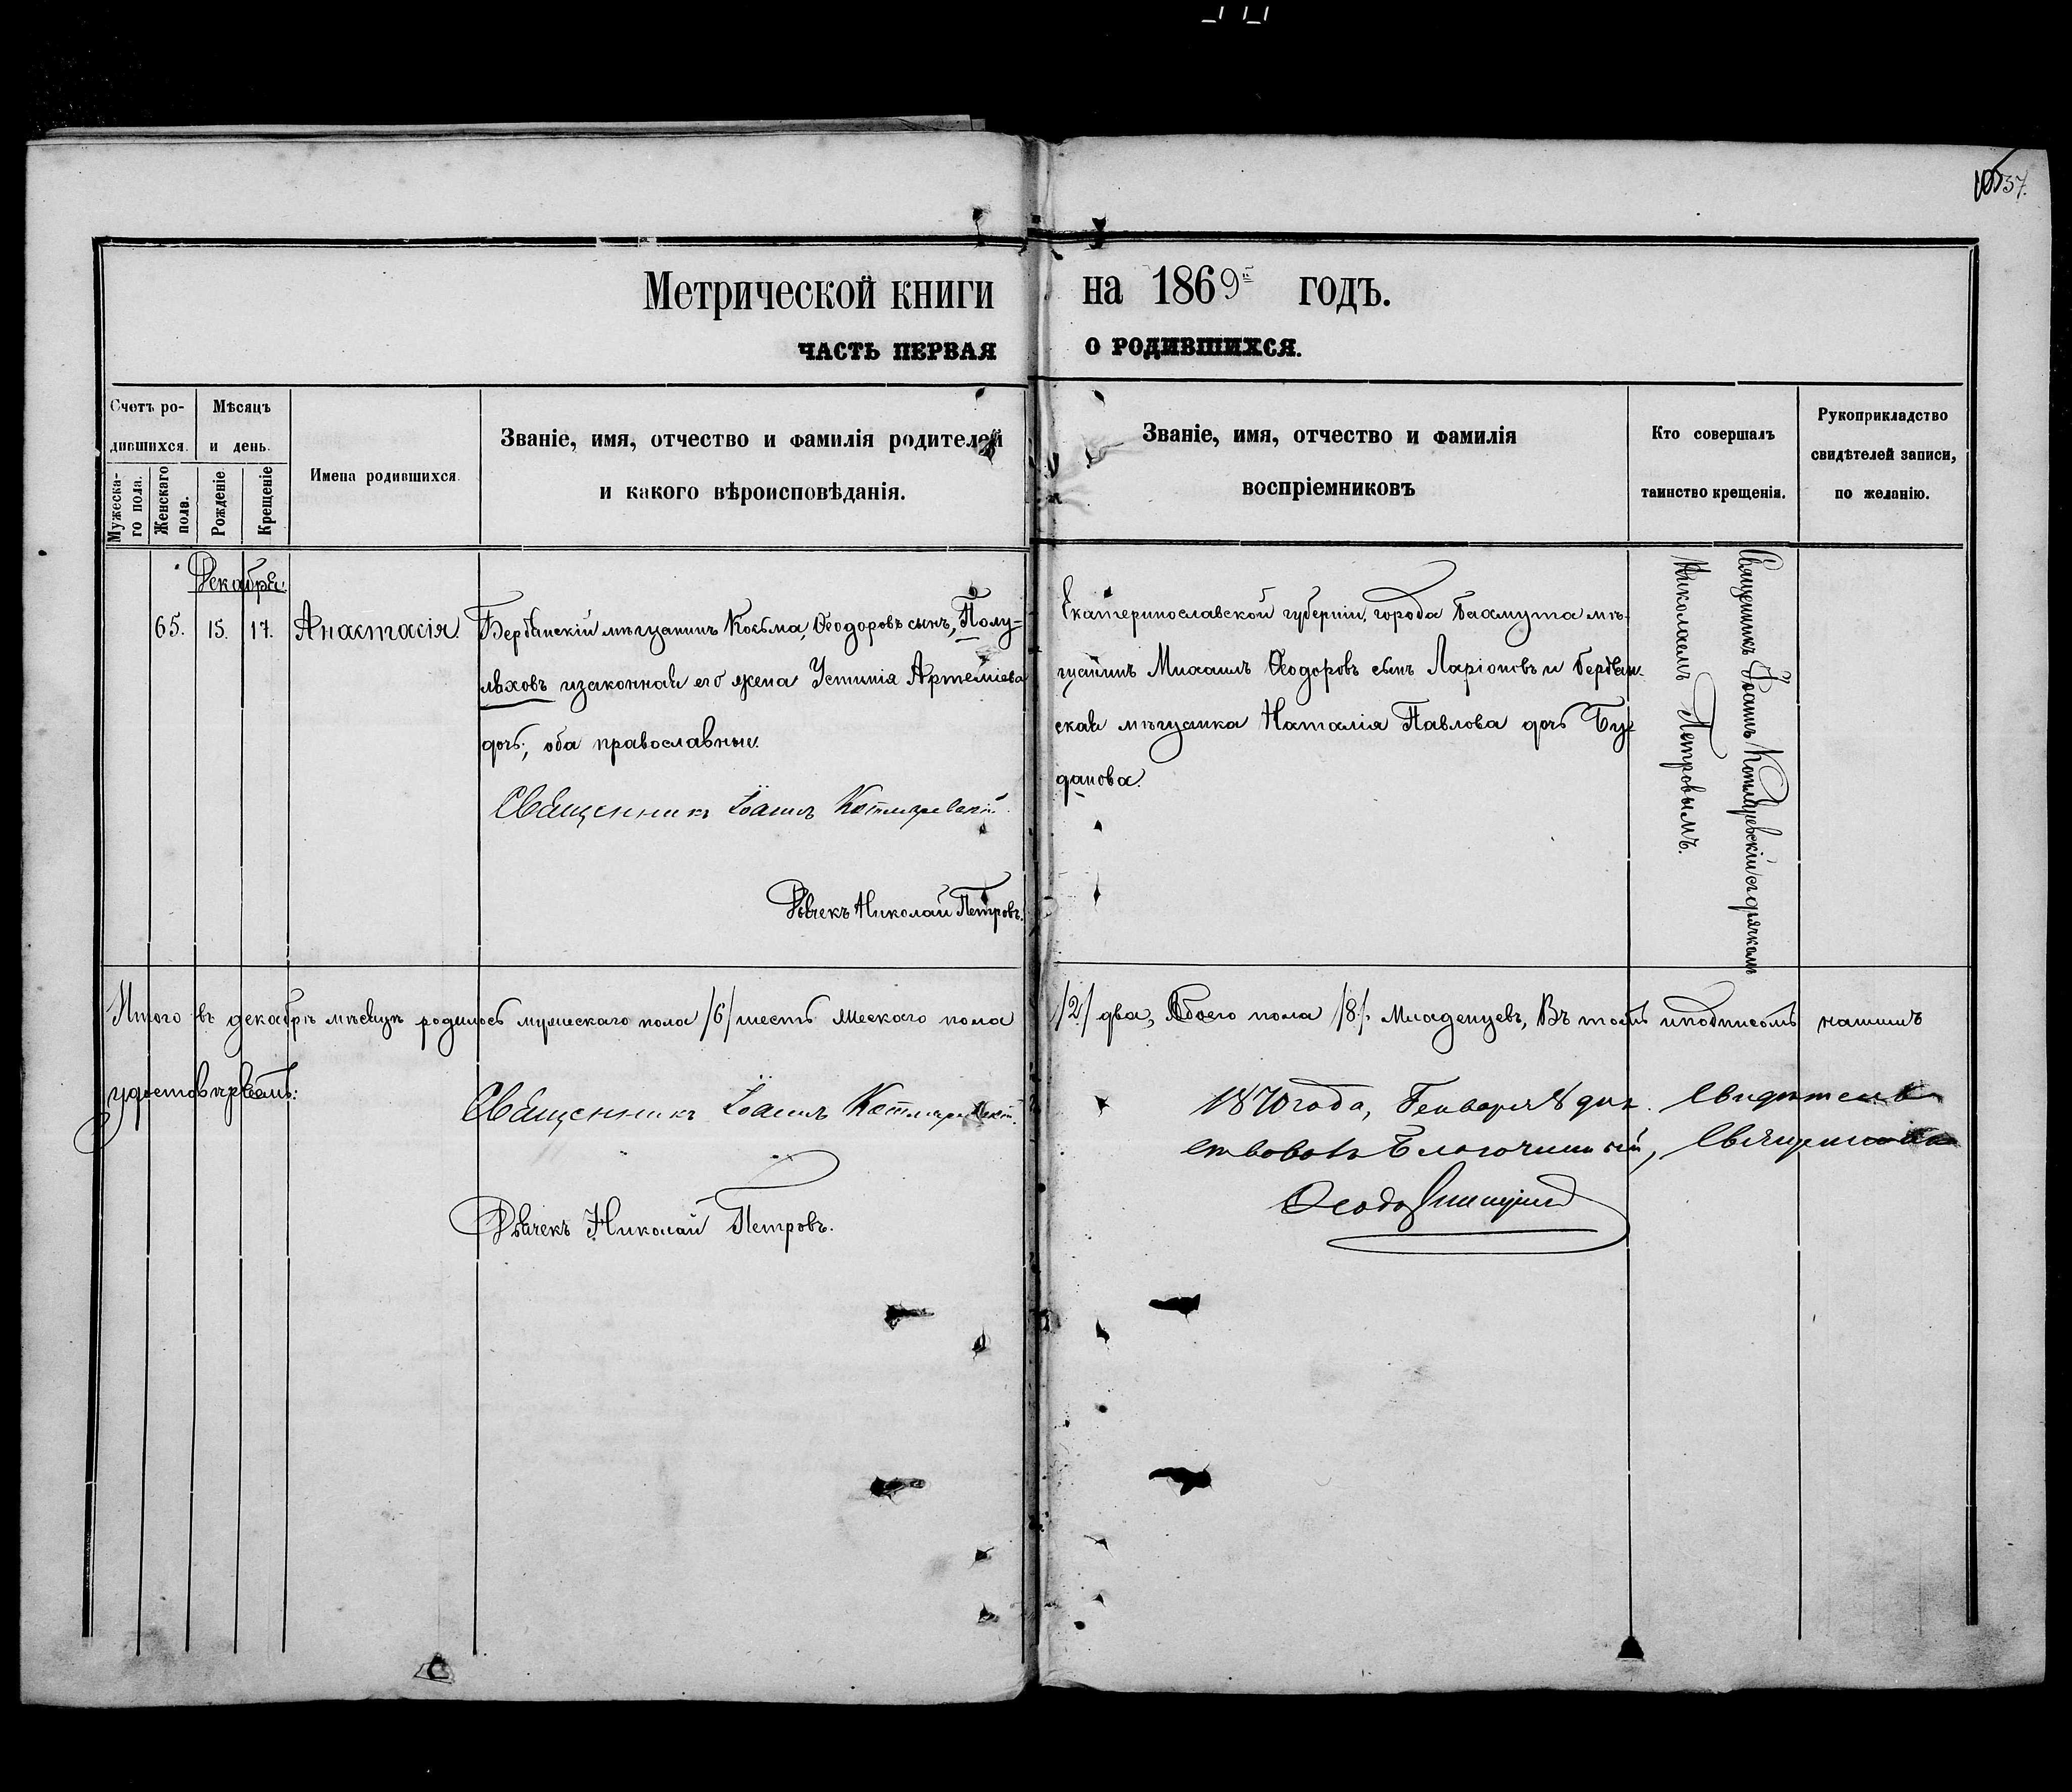 37.
Метрической книги на 1869й годъ.
ЧАСТЬ ПЕРВАЯ О РОДИВШИХСЯ.
Счетъ ро-
дившихся.
Мужеска-
го пола.
Женскаго
пола.
Мѣсяцъ
и день.
Рожденіе
Крещеніе
Имена родившихся.
Званіе, имя, отчество и фамилія родителей
и какого вѣроисповѣданія.
Званіе, имя, отчество и фамилія
воспріемниковъ
Кто совершалъ
таинство крещенія.
Рукоприкладство
свидѣтелей записи,
по желанію.
Декабрь.
65. 15. 17. Анастасія.
Бердянскій мѣщанинъ Косьма Ѳеодоровъ сынъ, Полу=
ляховъ и законная его жена Устинія Артеміева
дочь, оба православные.
Священникъ Іоаннъ Котляревскій
Дьячекъ Николай Петровъ.
Екатеринославской губерніи, города Бахмута мѣ-
щанинъ Михаилъ Ѳеодоровъ сынъ Ларіоновъ и Бердян-
ская мѣщанка Наталія Павлова дочь Бу-
данова.
Священникъ Іоаннъ Котляревскій съ дьячкомъ
Николаемъ Петровымъ.
Итого въ декабрѣ мѣсяцѣ родилось мужескаго пола /6/ шесть женскаго пола /2/ два, Обоего пола /8/. Младенцевъ, Въ томъ и подписомъ нашимъ
удостовѣряемъ:
Священникъ Іоаннъ Котляревскій.
Дьячекъ Николай Петровъ.
1870 года, Генваря 8 дня. Свидѣтель-
ствовалъ Благочинный, Священникъ